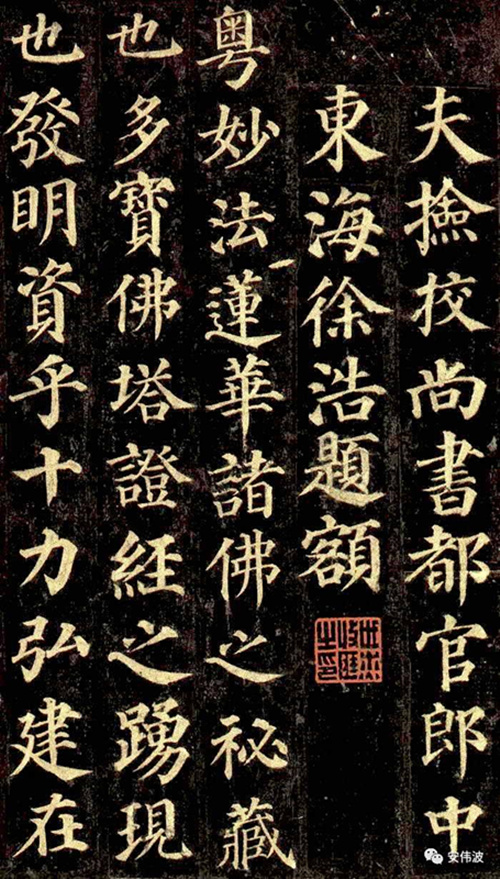 夫撿挍尚書都官郎中
東海徐浩題額
粤妙法蓮華諸佛之秘藏
也多寶佛塔證經之踴現
也發明資乎十力弘建在
安伟波